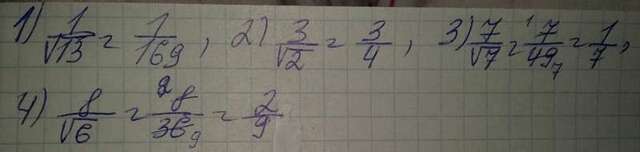 1) 1/√13 = 1/169, 2) 3/√2 = 3/4, 3) 7/√7 = 1 7/49 7 = 1/7,
4) 8/√6 = 2 8/36 9 = 2/9